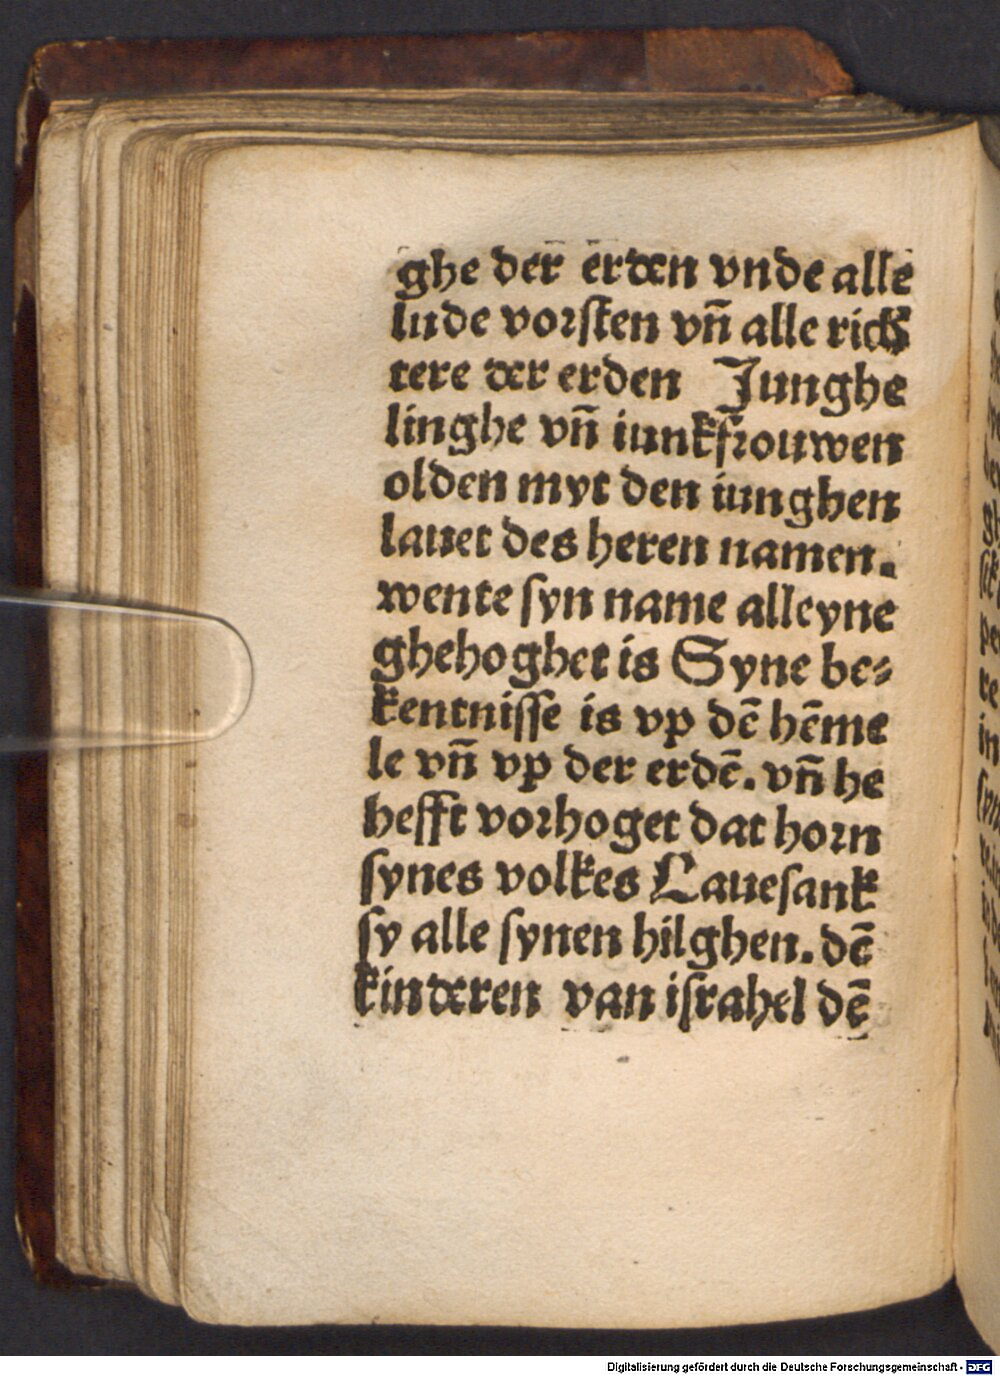 ghe der erden vnde alle
lude vorsten vn̄ alle rich
tere der erden Junghe
linghe vn̄ iunkfrouwen
olden myt den iunghen
lauet des heren namen.
wente syn name alleyne
ghehoghet is Syne be-
kentnisse is vp dē hēme
le vn̄ vp der erdē. vn̄ he
hefft vorhoget dat horn
synes volkes Lauesank
sy alle synen hilghen. dē
kinderen van israhel dē
Digitalisierung gefördert durch die Deutsche Forschungsgemeinschaft - DFG